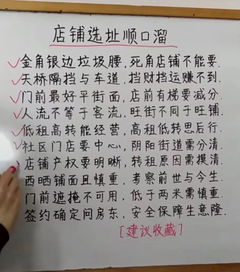 店铺选址顺口溜
金角银边垃圾腰，死角店铺不能要。
天桥隔挡与车道，挡财挡运赚不到。
门前最好平街面，店前有梯要减分。
人流不等于客流，旺街不同于旺铺。
低租高转能经营，高租低转思后行。
社区门店要中心，阴阳街道需分清。
店铺产权要明晰，转租原因需摸清。
西晒铺面且慎重，考察前世与今生。
门前遮掩不可用，低于两米需慎重。
签约确定问房东，安全保障生意隆。
［建议收藏］